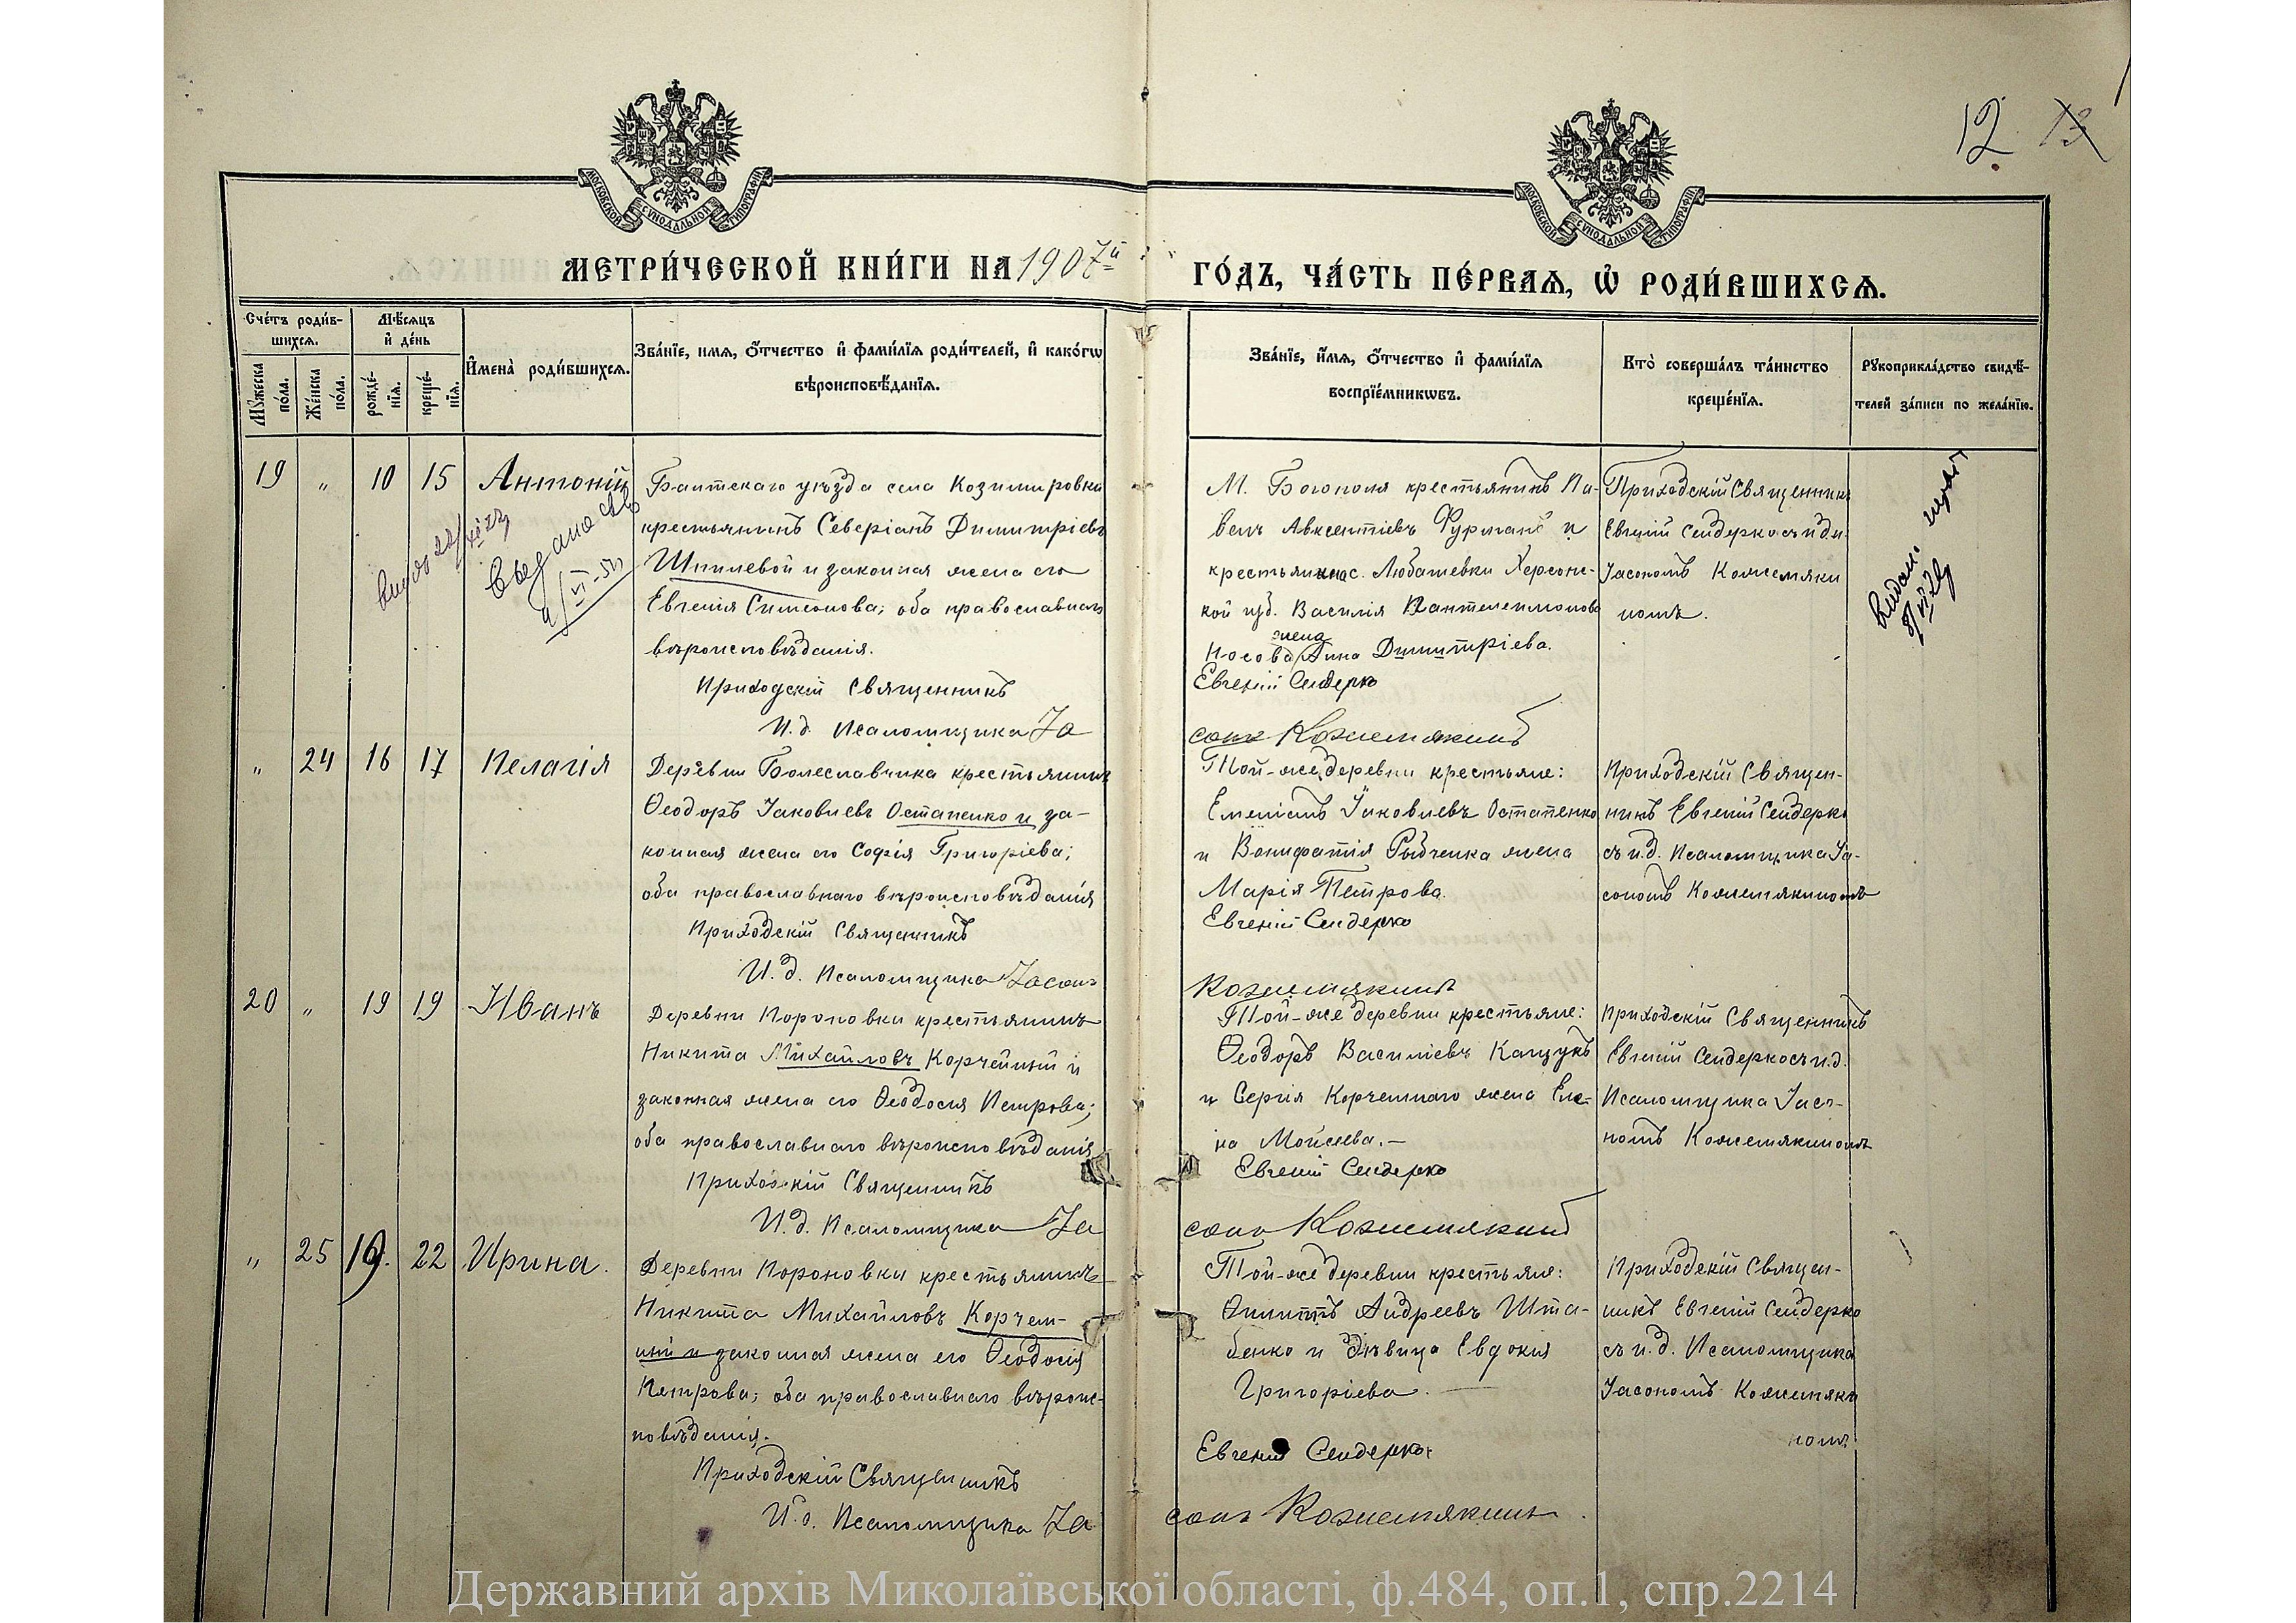 12. 13
МОСКОВСКОЙ СѴНОДАЛЬНОЙ ТИПОГРАФІИ
МОСКОВСКОЙ СѴНОДАЛЬНОЙ ТИПОГРАФІИ
МЕТРИ́ЧЕСКОЙ КНИ́ГИ НА 1907й
ГО́ДЪ, ЧА́СТЬ ПЕ́РВАѦ, Ѡ҆ РОДИ́ВШИХСѦ.
Сче́тъ роди́в-
шихсѧ.
Мѣ́сѧцъ
и҆ де́нь
Мꙋ́жеска
по́ла.
Же́нска
по́ла.
рожде́-
нїѧ.
креще́-
нїѧ.
И҆мена̀ роди́вшихсѧ.
Зва́нїе, имѧ, ѻ҆́тчество и҆ фами́лїѧ роди́телей, и҆ како́гѡ
вѣроисповѣ́данїѧ.
Зва́нїе, и҆́мѧ, ѻ҆́тчество и҆ фами́лїѧ
воспрїе́мникѡвъ.
Кто̀ соверша́лъ та́инство
креще́нїѧ.
Рꙋкоприкла́дство свидѣ́-
телей за́писи по жела́нїю.
19 " 10 15 Антоній
Балтскаго уѣзда села Козимировки
крестьянинъ Северіанъ Димитріевъ
Шпилевой и законная жена его
Евгенія Симеонова; оба православнаго
вѣроисповѣданія.
Приходскій Священникъ
И. д. Псаломщика Іа
М. Богополя крестьянинъ Па-
велъ Авксентіевъ Фурманъ и
крестьянина с. Любашевки Херсонс-
кой губ. Василія Пантелеимонова
жена
Носова Анна Димитріева.
Евгеній Сендерко
сонъ Кожемякинъ
Приходскій Священникъ
Евгеній Сендерко съ и д.
Іасономъ Кожемяки
номъ.
" 24 16 17 Пелагія
Деревни Болеславчика крестьянинъ
Ѳеодоръ Іаковлевъ Остапенко и за-
конная жена его Софія Григоріева;
оба православнаго вѣроисповѣданія
Приходскій Священникъ
И. д. Псаломщика Іасонъ
Той-же деревни крестьяне:
Емеліанъ Іаковлевъ Остапенко
и Вонифатія Рыбченка жена
Марія Петрова.
Евгеній Сендерко
Кожемякинъ
Приходскій Священ-
никъ Евгеній Сендерко
съ и.д. Псаломщика Іа-
сономъ Кожемякиномъ
20 " 19 19 Иванъ
Деревни Пороновки крестьянинъ
Никита Михайловъ Корчемный и
законная жена его Ѳеодосія Петрова;
оба православнаго вѣроисповѣданія
Приходскій Священникъ
И. д. Псаломщика Іа
Той-же деревни крестьяне:
Ѳеодоръ Василіевъ Кащукъ
и Сергія Корчемнаго жена Еле-
на Моисеева. –
Евгеній Сендерко
сонъ Кожемякинъ
Приходскій Священникъ
Евгеній Сендерко съ и.д.
Псаломщика Іасо-
номъ Кожемякиномъ
" 25 19. 22 Ирина.
Деревни Пороновки крестьянинъ
Никита Михайловъ Корчем-
ный и законная жена его Ѳеодосія
Петрова; оба православнаго вѣроис-
повѣданія.
Приходскій Священникъ
И. о. Псаломщика Іа
Той-же деревни крестьяне:
Андреевъ Шта-
бенко и дѣвица Евдокія
Григоріева.
Евгеній Сендерко
сонъ Кожемякинъ.
Приходскій Священ-
никъ Евгеній Сендерко
съ и. д. Псаломщика
Іасономъ Кожемяки
номъ
Державний архів Миколаївської області, ф.484, оп.1, спр.2214